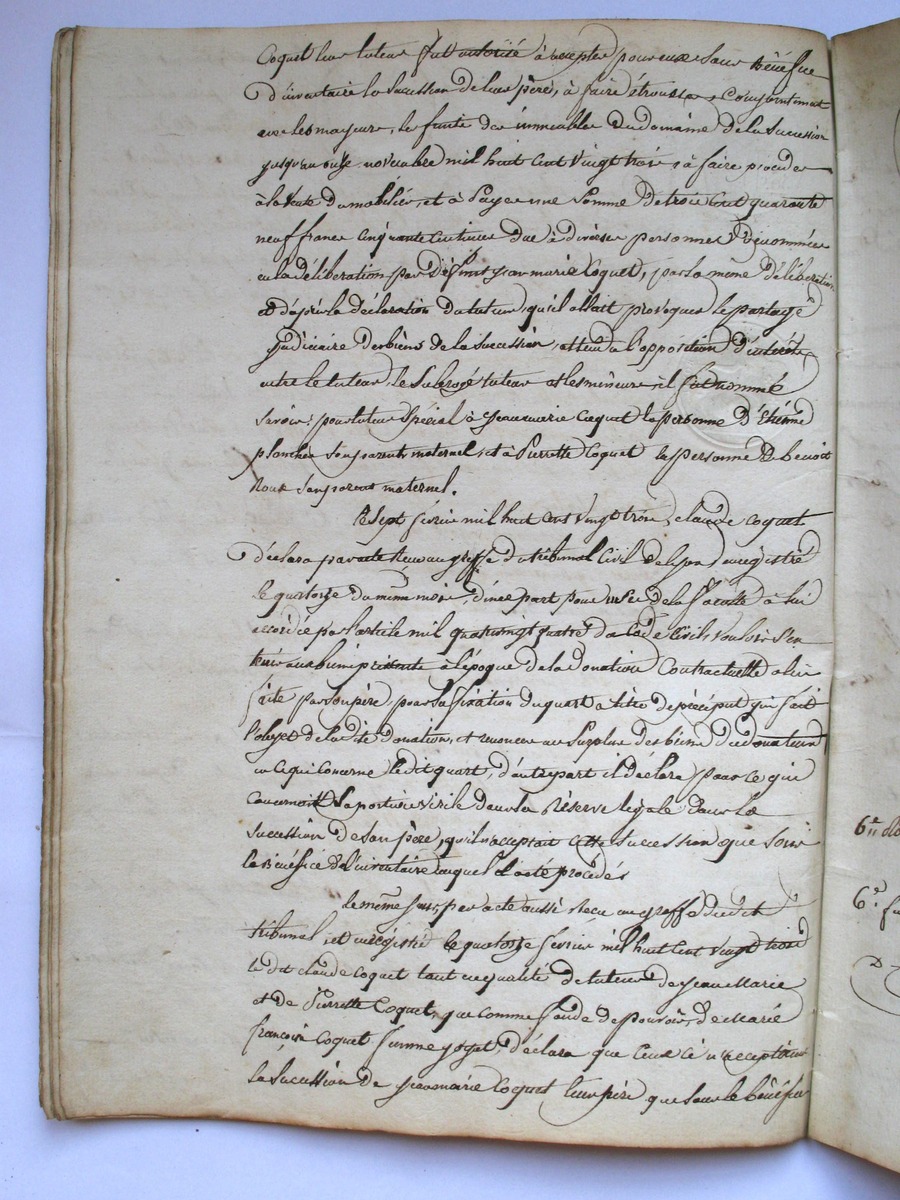 Coquet leur tuteur fut autorisé à accepter pour eux sous Bénéfice
d'inventaire la succession de leur père, à faire étrousser, Conjointement
avec les majeurs, les fruits des immeubles du domaine de la succession
jusqu'au onze novembre mil huit cent vingt trois, à faire procéder
à la Vente du mobilier, et à payer une somme de trois cent quarante
neuf francs cinquante centimes due à diverses personnes dénommées
en la délibération, par défunt jean marie Coquet, par la même délibération
et d'après la déclaration du tuteur, qu'il allait provoquer le partage
judiciaire des biens de la succession, attendu l'opposition d'intérêts
entre le tuteur, le Subrogé tuteur et les mineurs, il fut nommé
savoir: pour tuteur spécial à jeanmarie Coquet la personne d'Etienne
plancher son parent maternel, et à Pierrette Coquet la personne de benoit
Roux son parent maternel.
Le sept février mil huit cent vingt trois, claude Coquet
déclara par acte reçu au greffe du tribunal Civil de lyon, enregistré
le quatorze du même mois, d'une part pour user de la faculté à lui
accordée par l'article mil quatrevingt quatre du Code Civil, vouloir s'en
tenir aux biens présents à l'époque de la donation Contractuelle à lui
faite par son père, pour la fixation du quart à titre de préciput qui fait
l'objet de la dite donation, et renoncer au surplus des biens du donateur
en ce qui concerne le dit quart, d'autre part il déclara pour ce qui
concernait sa portion virile dans la Réserve légale dans la
succession de son père, qu'il n'acceptait cette succession que sous
le Bénéfice de l'inventaire auquel il a été procédé.
le même jour, par acte aussi Reçu au greffe du dit
tribunal, et enregistré le quatorze février mil huit cent vingt trois
le dit claude Coquet tant en qualité de tuteur de jean Marie
et de Pierrette Coquet, que comme fondé de pouvoirs, de Marie
françoise Coquet femme joyet, déclara que ceux ci n'acceptaient
la succession de jeanmarie Coquet leur père que sous le bénéfice
6e
6e.